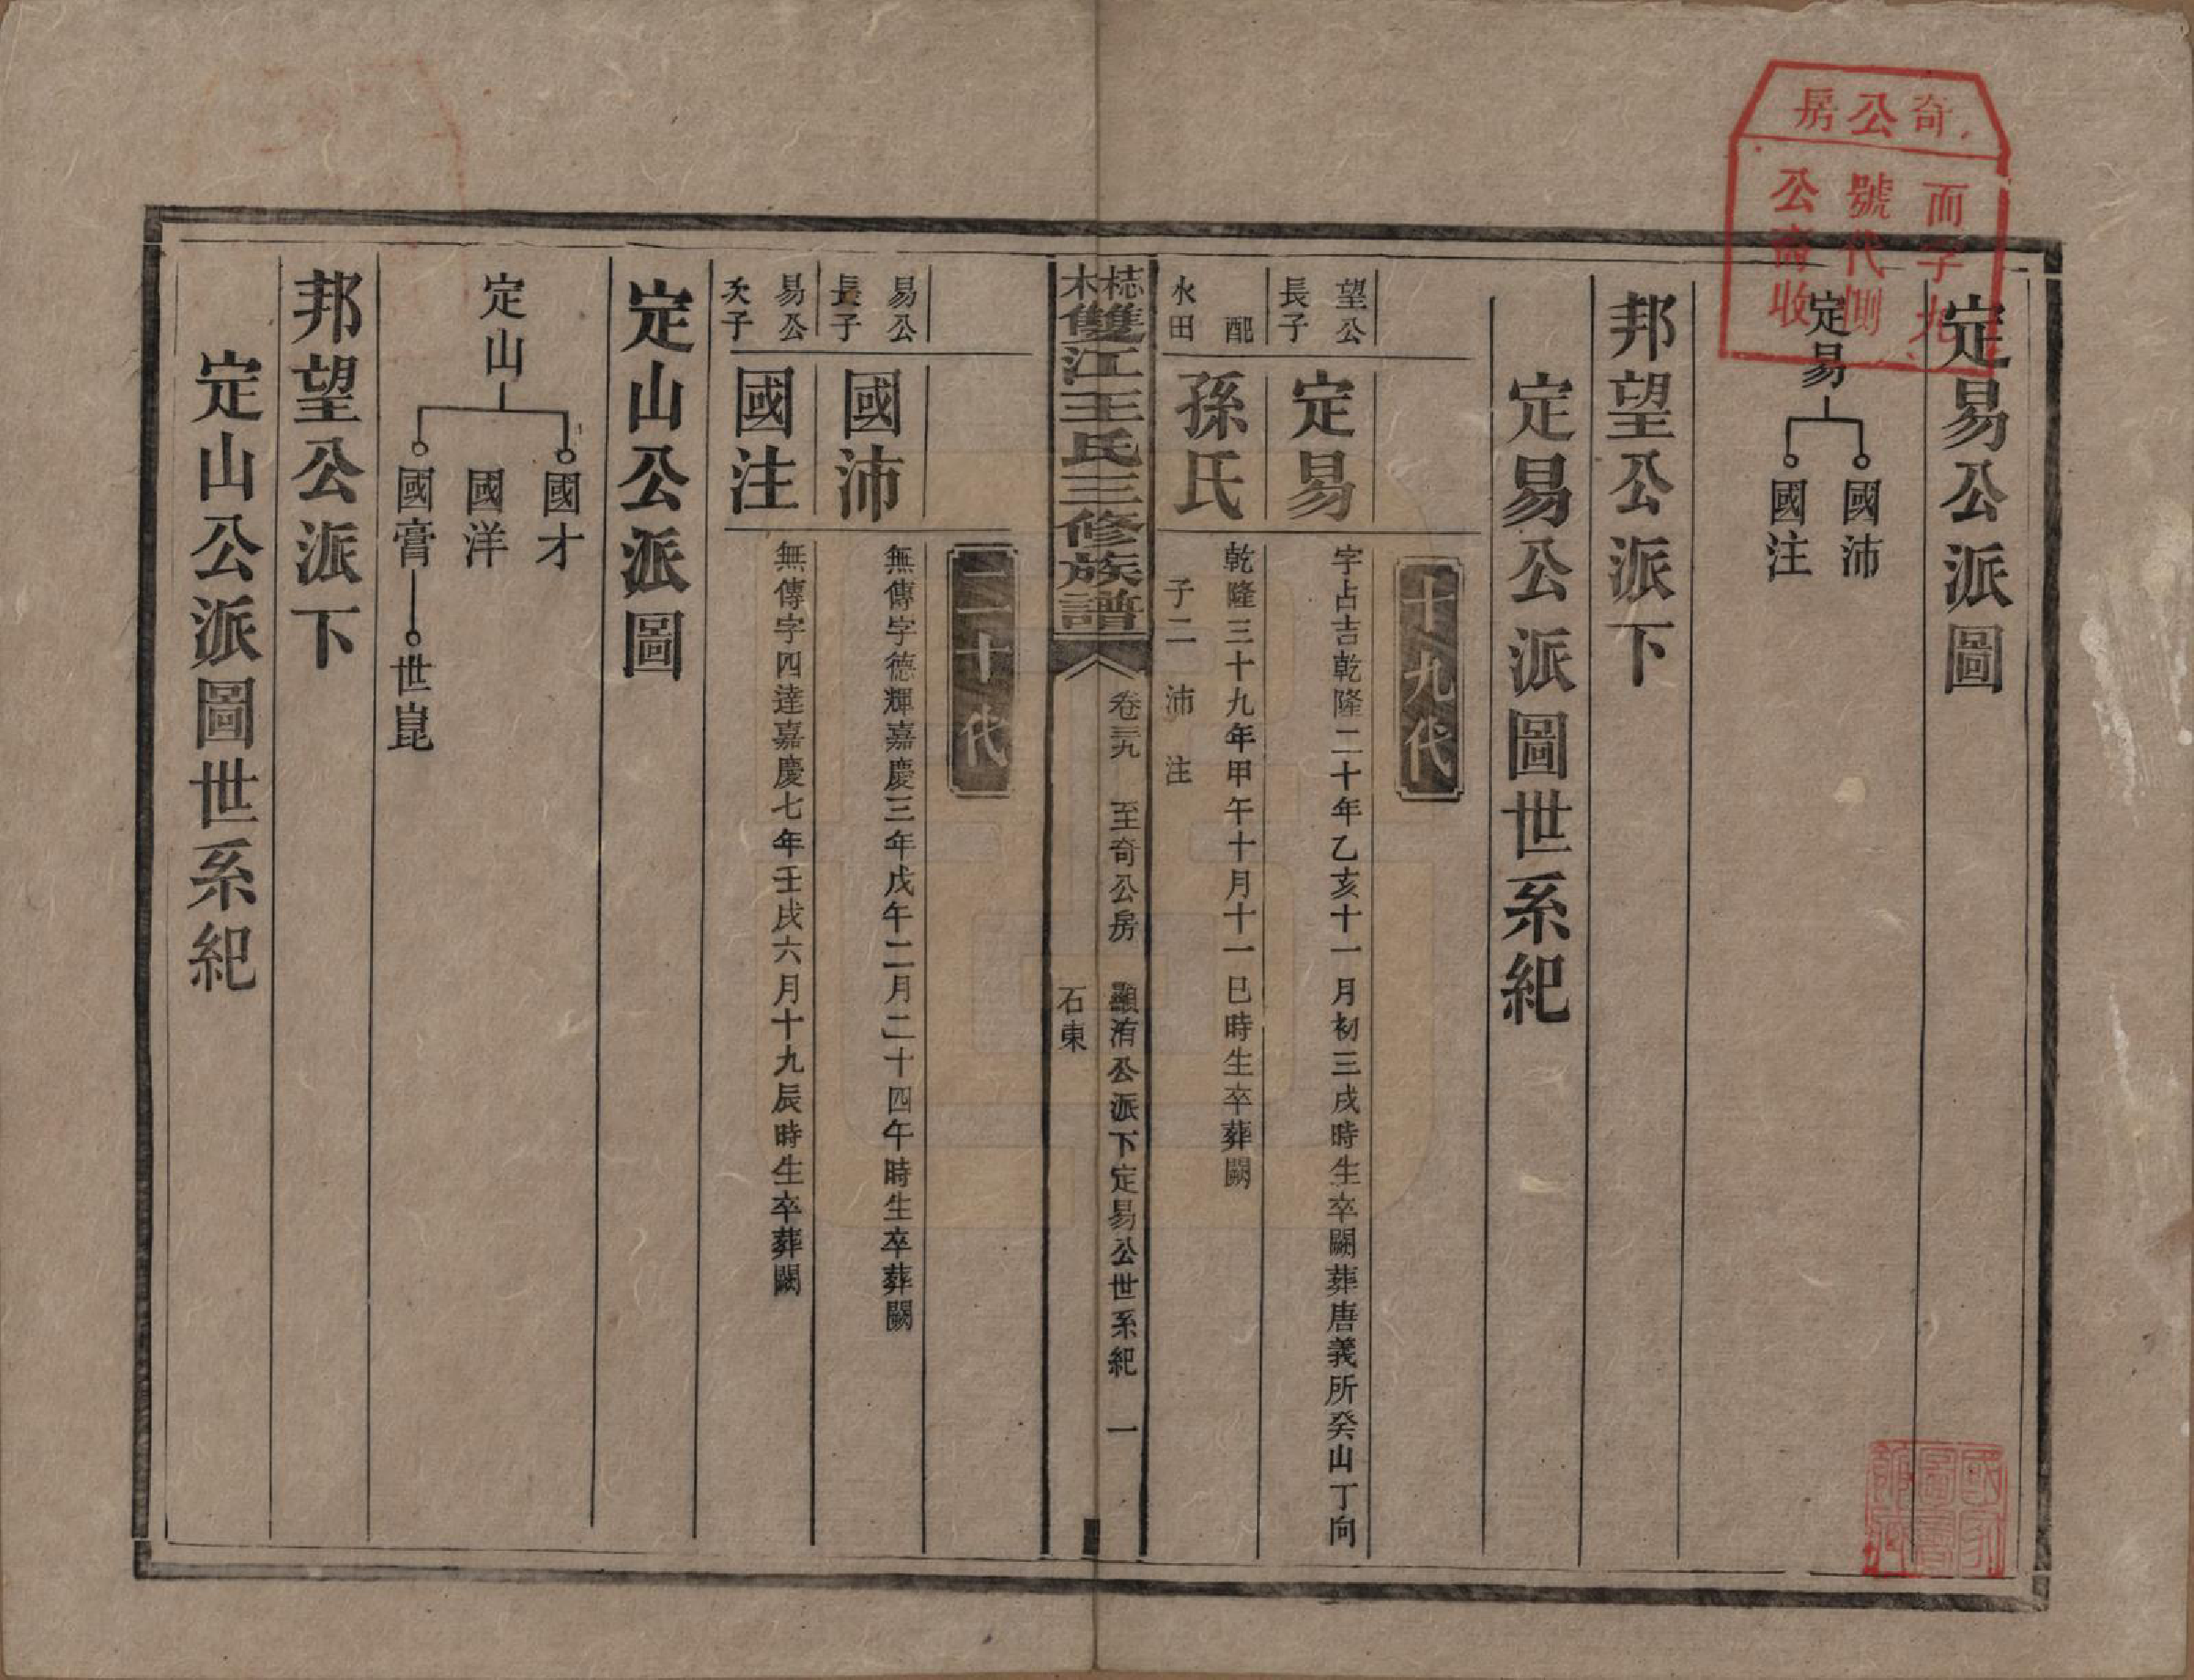 定易公派圖
定易
國沛
國注
邦望公派下
定易公派圖世系紀
十九代
望公
長子
定易
字占吉乾隆二十年乙亥十一月初三戌時生卒闕葬唐義所癸山丁向
配
水田
孫氏
乾隆三十九年甲午十月十一巳時生卒葬闕
子二 沛 注
梽木雙江王氏三修族譜
卷三九 至奇公房 顯洧公派下定易公世系紀 一
石東
二十代
易公
長子
國沛
無傳字德輝嘉慶三年戊午二月二十四午時生卒葬闕
易公
次子
國注
無傳字四達嘉慶七年壬戌六月十九辰時生卒葬闕
定山公派圖
定山
國才
國洋
國膏
世崑
邦望公派下
定山公派圖世系紀
奇公房
而字九
號代側
公齋收